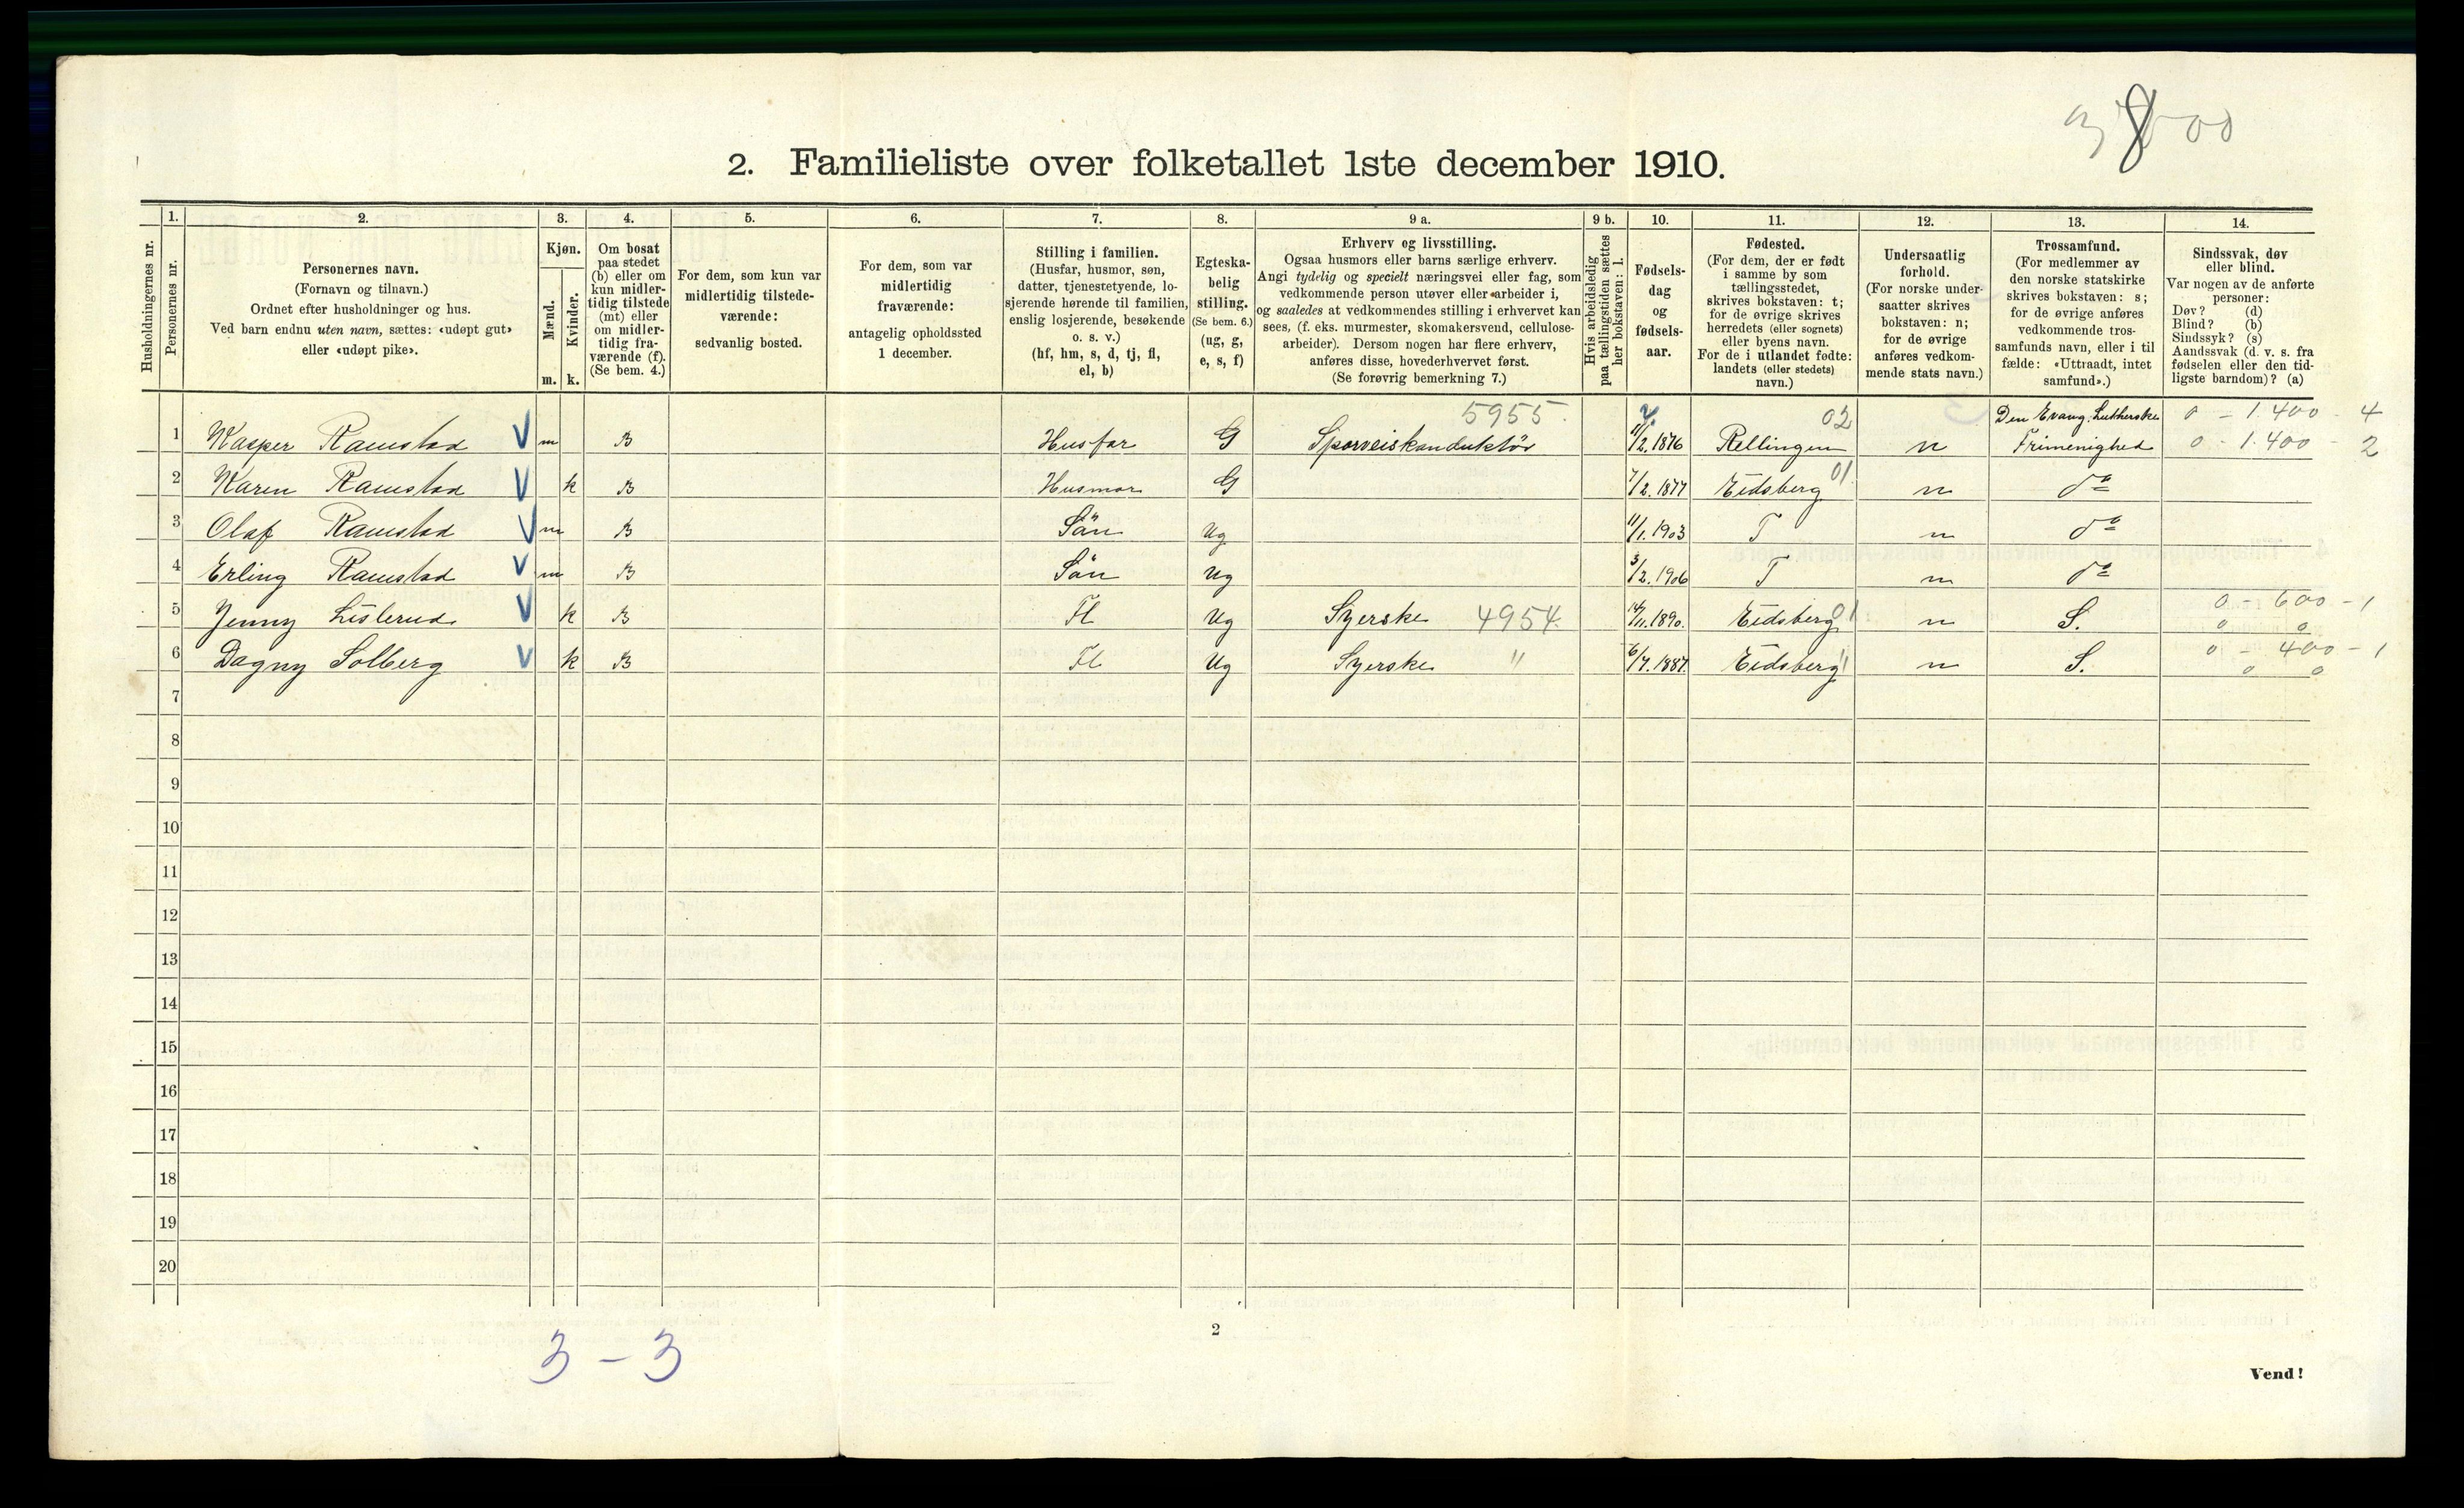 3 8 00
2. Familieliste over folketallet 1ste december 1910.
Husholdningernes nr.
1. Personernes nr.
2. Personernes navn.
(Fornavn og tilnavn.)
Ordnet efter husholdninger og hus.
Ved barn endnu uten navn, sættes: «udøpt gut»
eller «udøpt pike».
3. Kjøn.
Mænd. m.
Kvinder. k.
4. Om bosat
paa stedet
(b) eller om
kun midler-
tidig tilstede
(mt) eller
om midler-
tidig fra-
værende (f).
(Se bem. 4.)
5. For dem, som kun var
midlertidig tilstede-
værende:
sedvanlig bosted.
6. For dem, som var
midlertidig
fraværende:
antagelig opholdssted
1 december.
7. Stilling i familien.
(Husfar, husmor, søn,
datter, tjenestetyende, lo-
sjerende hørende til familien,
enslig losjerende, besøkende
o. s. v.)
(hf, hm, s, d, tj, fl,
el, b)
8. Egteska-
belig
stilling.
(Se bem. 6.)
(ug, g,
e, s, f)
9 a. Erhverv og livsstilling.
Ogsaa husmors eller barns særlige erhverv.
Angi tydelig og specielt næringsvei eller fag, som
vedkommende person utøver eller arbeider i,
og saaledes at vedkommendes stilling i erhvervet kan
sees, (f. eks. murmester, skomakersvend, cellulose-
arbeider). Dersom nogen har flere erhverv,
anføres disse, hovederhvervet først.
(Se forøvrig bemerkning 7.)
9 b. Hvis arbeidsledig
paa tællingstiden sættes
her bokstaven: l.
10. Fødsels-
dag
og
fødsels-
aar.
11. Fødested.
(For dem, der er født
i samme by som
tællingsstedet,
skrives bokstaven: t;
for de øvrige skrives
herredets (eller sognets)
eller byens navn.
For de i utlandet fødte:
landets (eller stedets)
navn.)
12. Undersaatlig
forhold.
(For norske under-
saatter skrives
bokstaven: n;
for de øvrige
anføres vedkom-
mende stats navn.)
13. Trossamfund.
(For medlemmer av
den norske statskirke
skrives bokstaven: s;
for de øvrige anføres
vedkommende tros-
samfunds navn, eller i til
fælde: «Uttraadt, intet
samfund».)
14. Sindssvak, døv
eller blind.
Var nogen av de anførte
personer:
Døv? (d)
Blind? (b)
Sindssyk? (s)
Aandssvak (d. v. s. fra
fødselen eller den tid-
ligste barndom)? (a)
5955. 02 Den Evang. Lutherske 0 - 1.400 - 4
1 Kasper Ramstad V m B Husfar G Sporveiskonduktör 11/2.1876 Rellingen n Frimenighed 0 - 1.400 - 2
2 Karen Ramstad V k B Husmor G 7/2.1877 Eidsberg 01. n do
3 Olaf Ramstad V m B Sön Ug 11/1.1903 T n do
4 Erling Ramstad V m B Sön Ug 3/2.1906 T n do
5 Jenny Lislerud. V k B Fl Ug Syerske 4954. 14/11.1890. Eidsberg 01 n S. 0 - 600 - 1
0 0
6 Dagny Solberg V k B Fl Ug Syerske " 6/7.1887. Eidsberg " n S. 0 - 400 - 1
0 0
7
8
9
10
11
12
13
14
15
16
17
18
19
20
3 - 3
2
Vend!